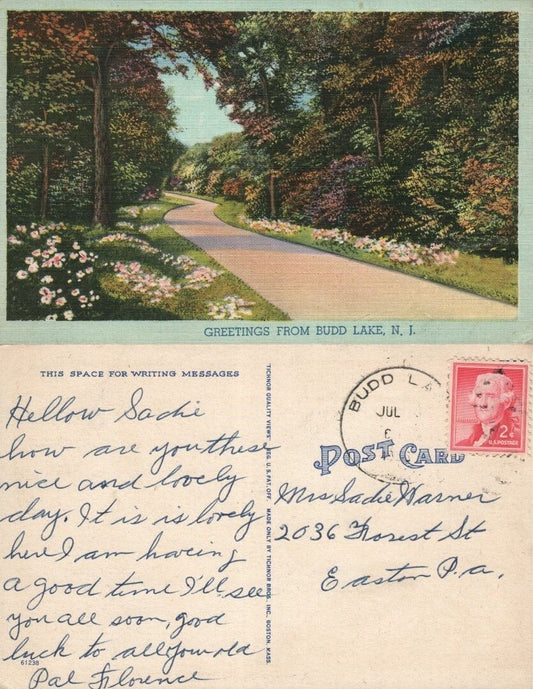 GREETINGS FROM BUDD LAKE, N. J.
THIS SPACE FOR WRITING MESSAGES
Hellow Sadie
how are you these
nice and lovely
day. It is is lovely
here I am having
a good time I'll see
you all soon, good
luck to all your old
Pal Florence
61238
TICHNOR QUALITY VIEWS REG. U. S. PAT. OFF. MADE ONLY BY TICHNOR BROS. INC. BOSTON, MASS.
BUDD LA
JUL
6
2¢
U.S. POSTAGE
POST CARD
Mrs Sadie Warner
2036 Forest St
Easton P.a.